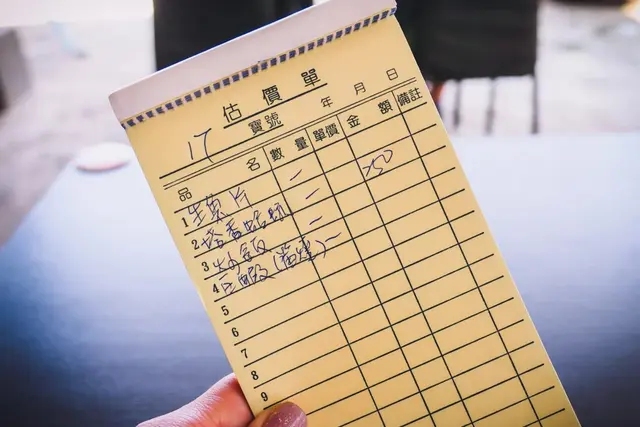 估價單
17 寶號 年 月 日
品名 數量 單價 金額 備註
1 生魚片 一 250
2 塔香蛤蜊 一
3 炒飯 一
4 蝦 一
5
6
7
8
9